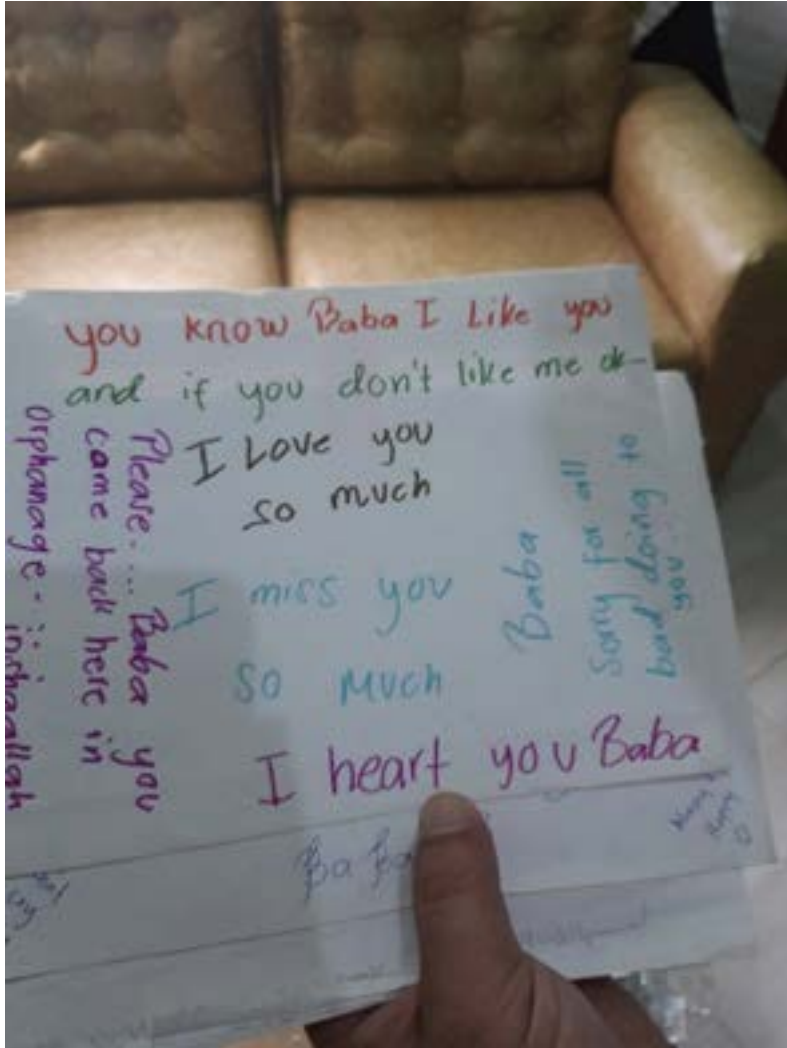 you know Baba I Like you
and if you don't like me ok
I Love you
so much
I miss you
so much
I heart you Baba
Please.... Baba you
came back here in
orphanage. inshaallah
Baba
Sorry for all
bad doing to
you.